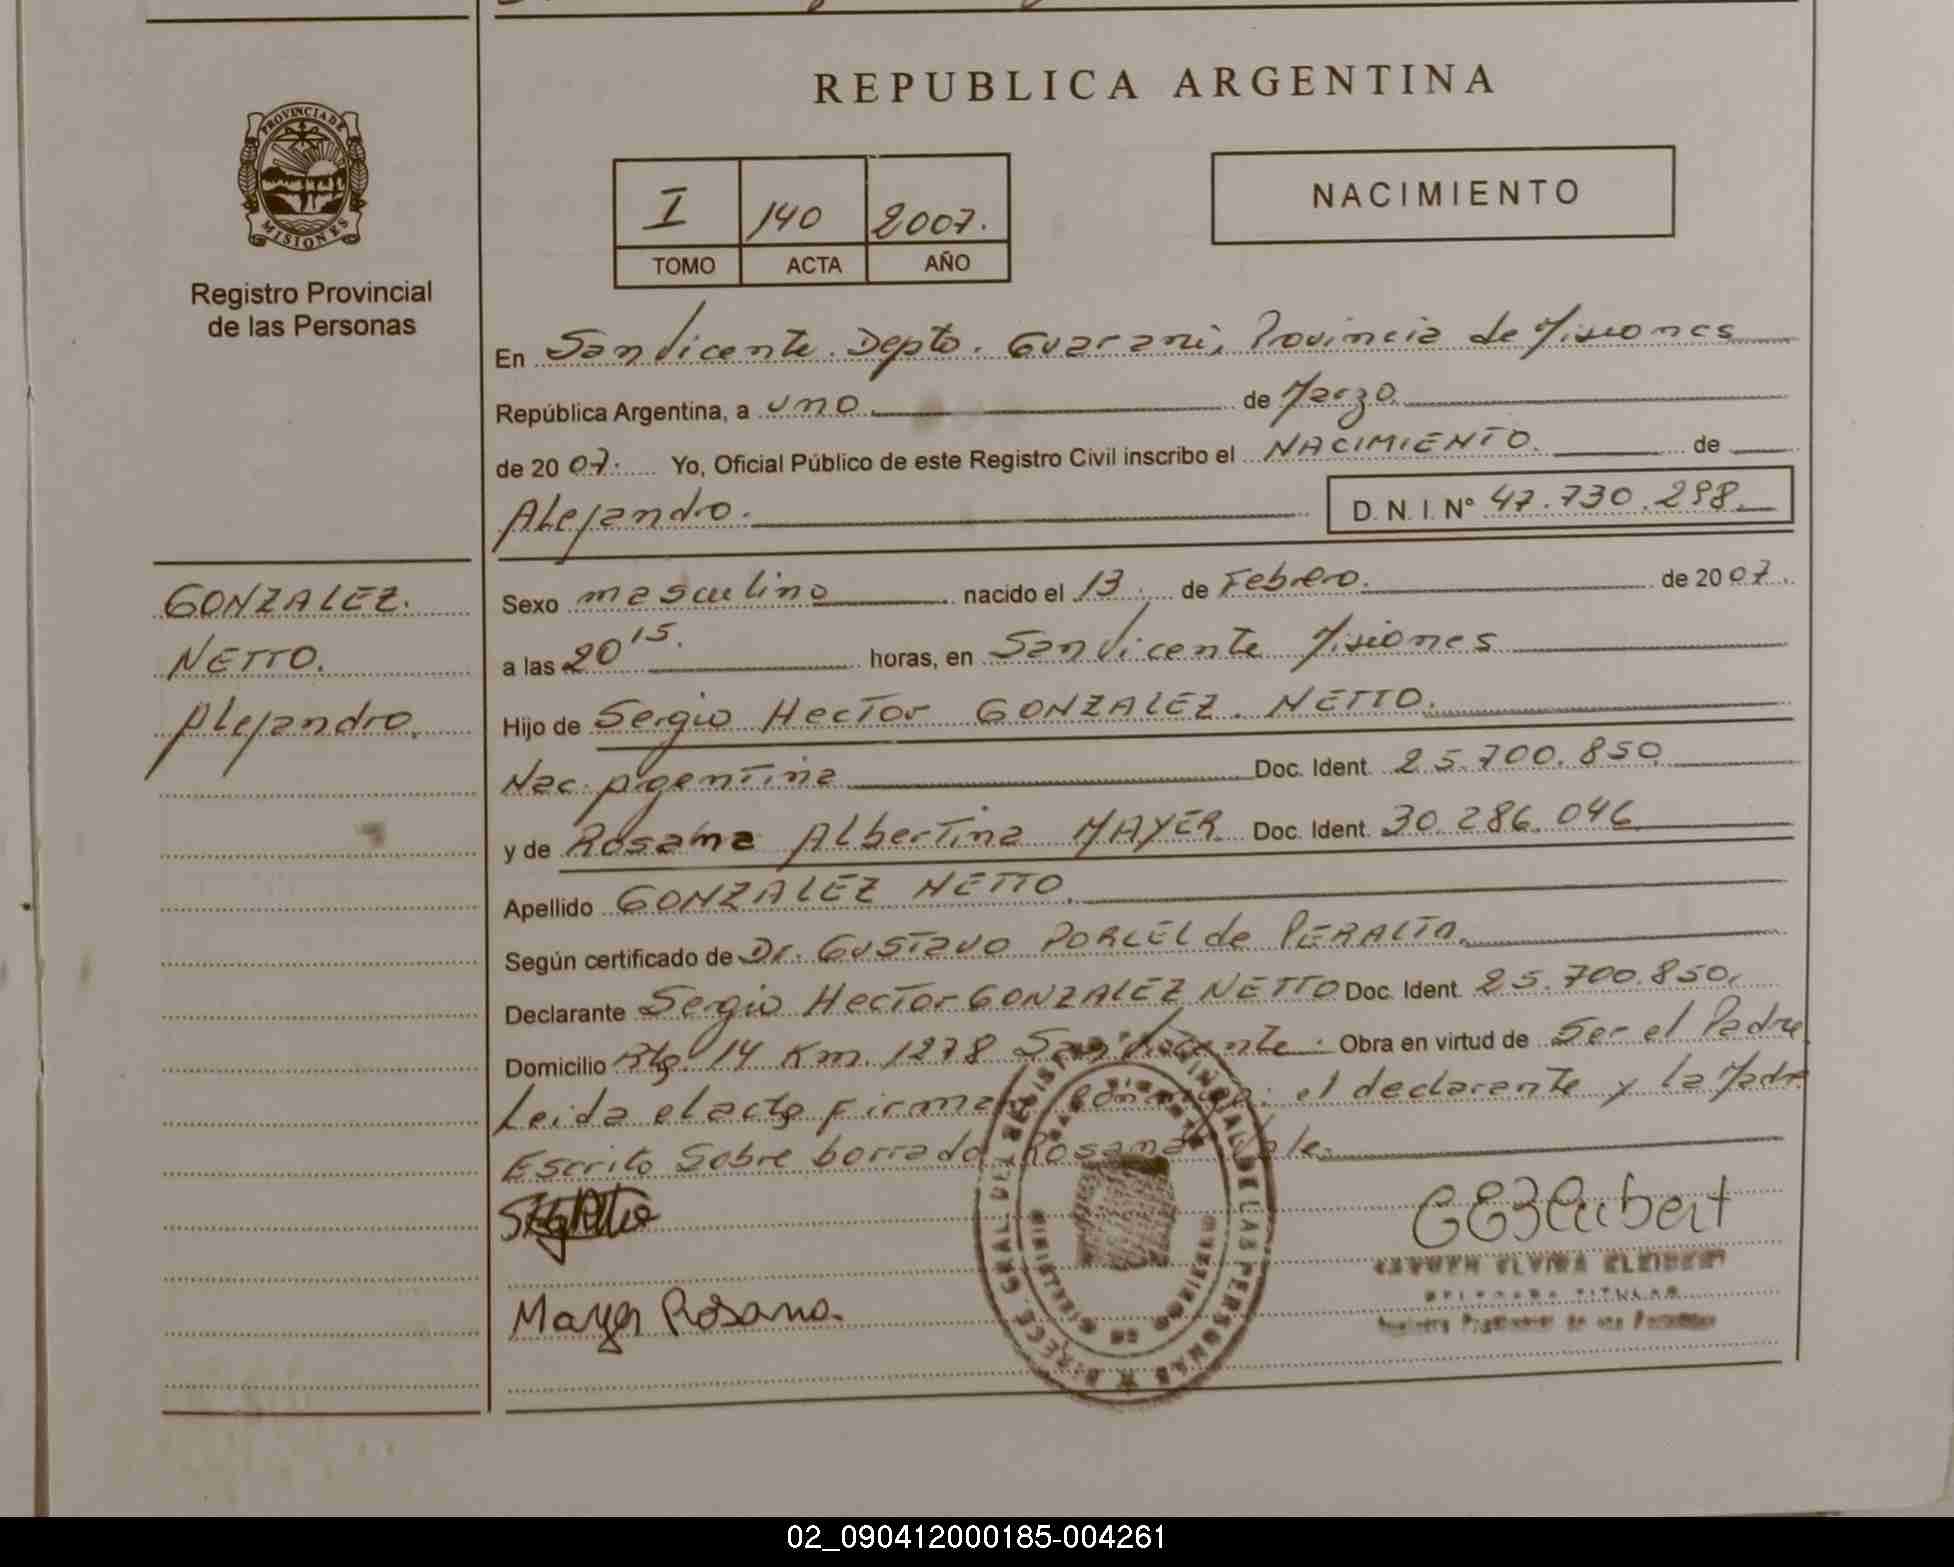 REPUBLICA ARGENTINA
PROVINCIA DE
MISIONES
Registro Provincial
de las Personas
I 140 2007.
TOMO ACTA AÑO
NACIMIENTO
En San Vicente. Depto. Guarani, Provincia de Misiones
República Argentina, a uno de Marzo
de 2007. Yo, Oficial Público de este Registro Civil inscribo el NACIMIENTO. de
Alejandro. D. N. I. Nº 47.730.298.
GONZALEZ.
NETTO.
Alejandro.
Sexo masculino nacido el 13. de Febrero. de 2007.
a las 20 15. horas, en San Vicente Misiones
Hijo de Sergio Hector GONZALEZ. NETTO.
Nac. Argentina Doc. Ident. 25.700.850
y de Rosana Albertina MAYER. Doc. Ident. 30.286.046
Apellido GONZALEZ NETTO.
Según certificado de Dr. GUSTAVO PORCEL de PERALTA.
Declarante Sergio Hector GONZALEZ NETTO Doc. Ident. 25.700.850.
Domicilio 14 Km. 1278 San Vicente. Obra en virtud de Ser el Padre
Leida el acta firman conmigo: el declarante y la Madre
Escrito Sobre borrado Rosana Vale.
Mayer Rosana.
DIRECC. GRAL. DEL REGISTRO PROVINCIAL DE LAS PERSONAS
ELVIRA
TITULAR
02_090412000185-004261